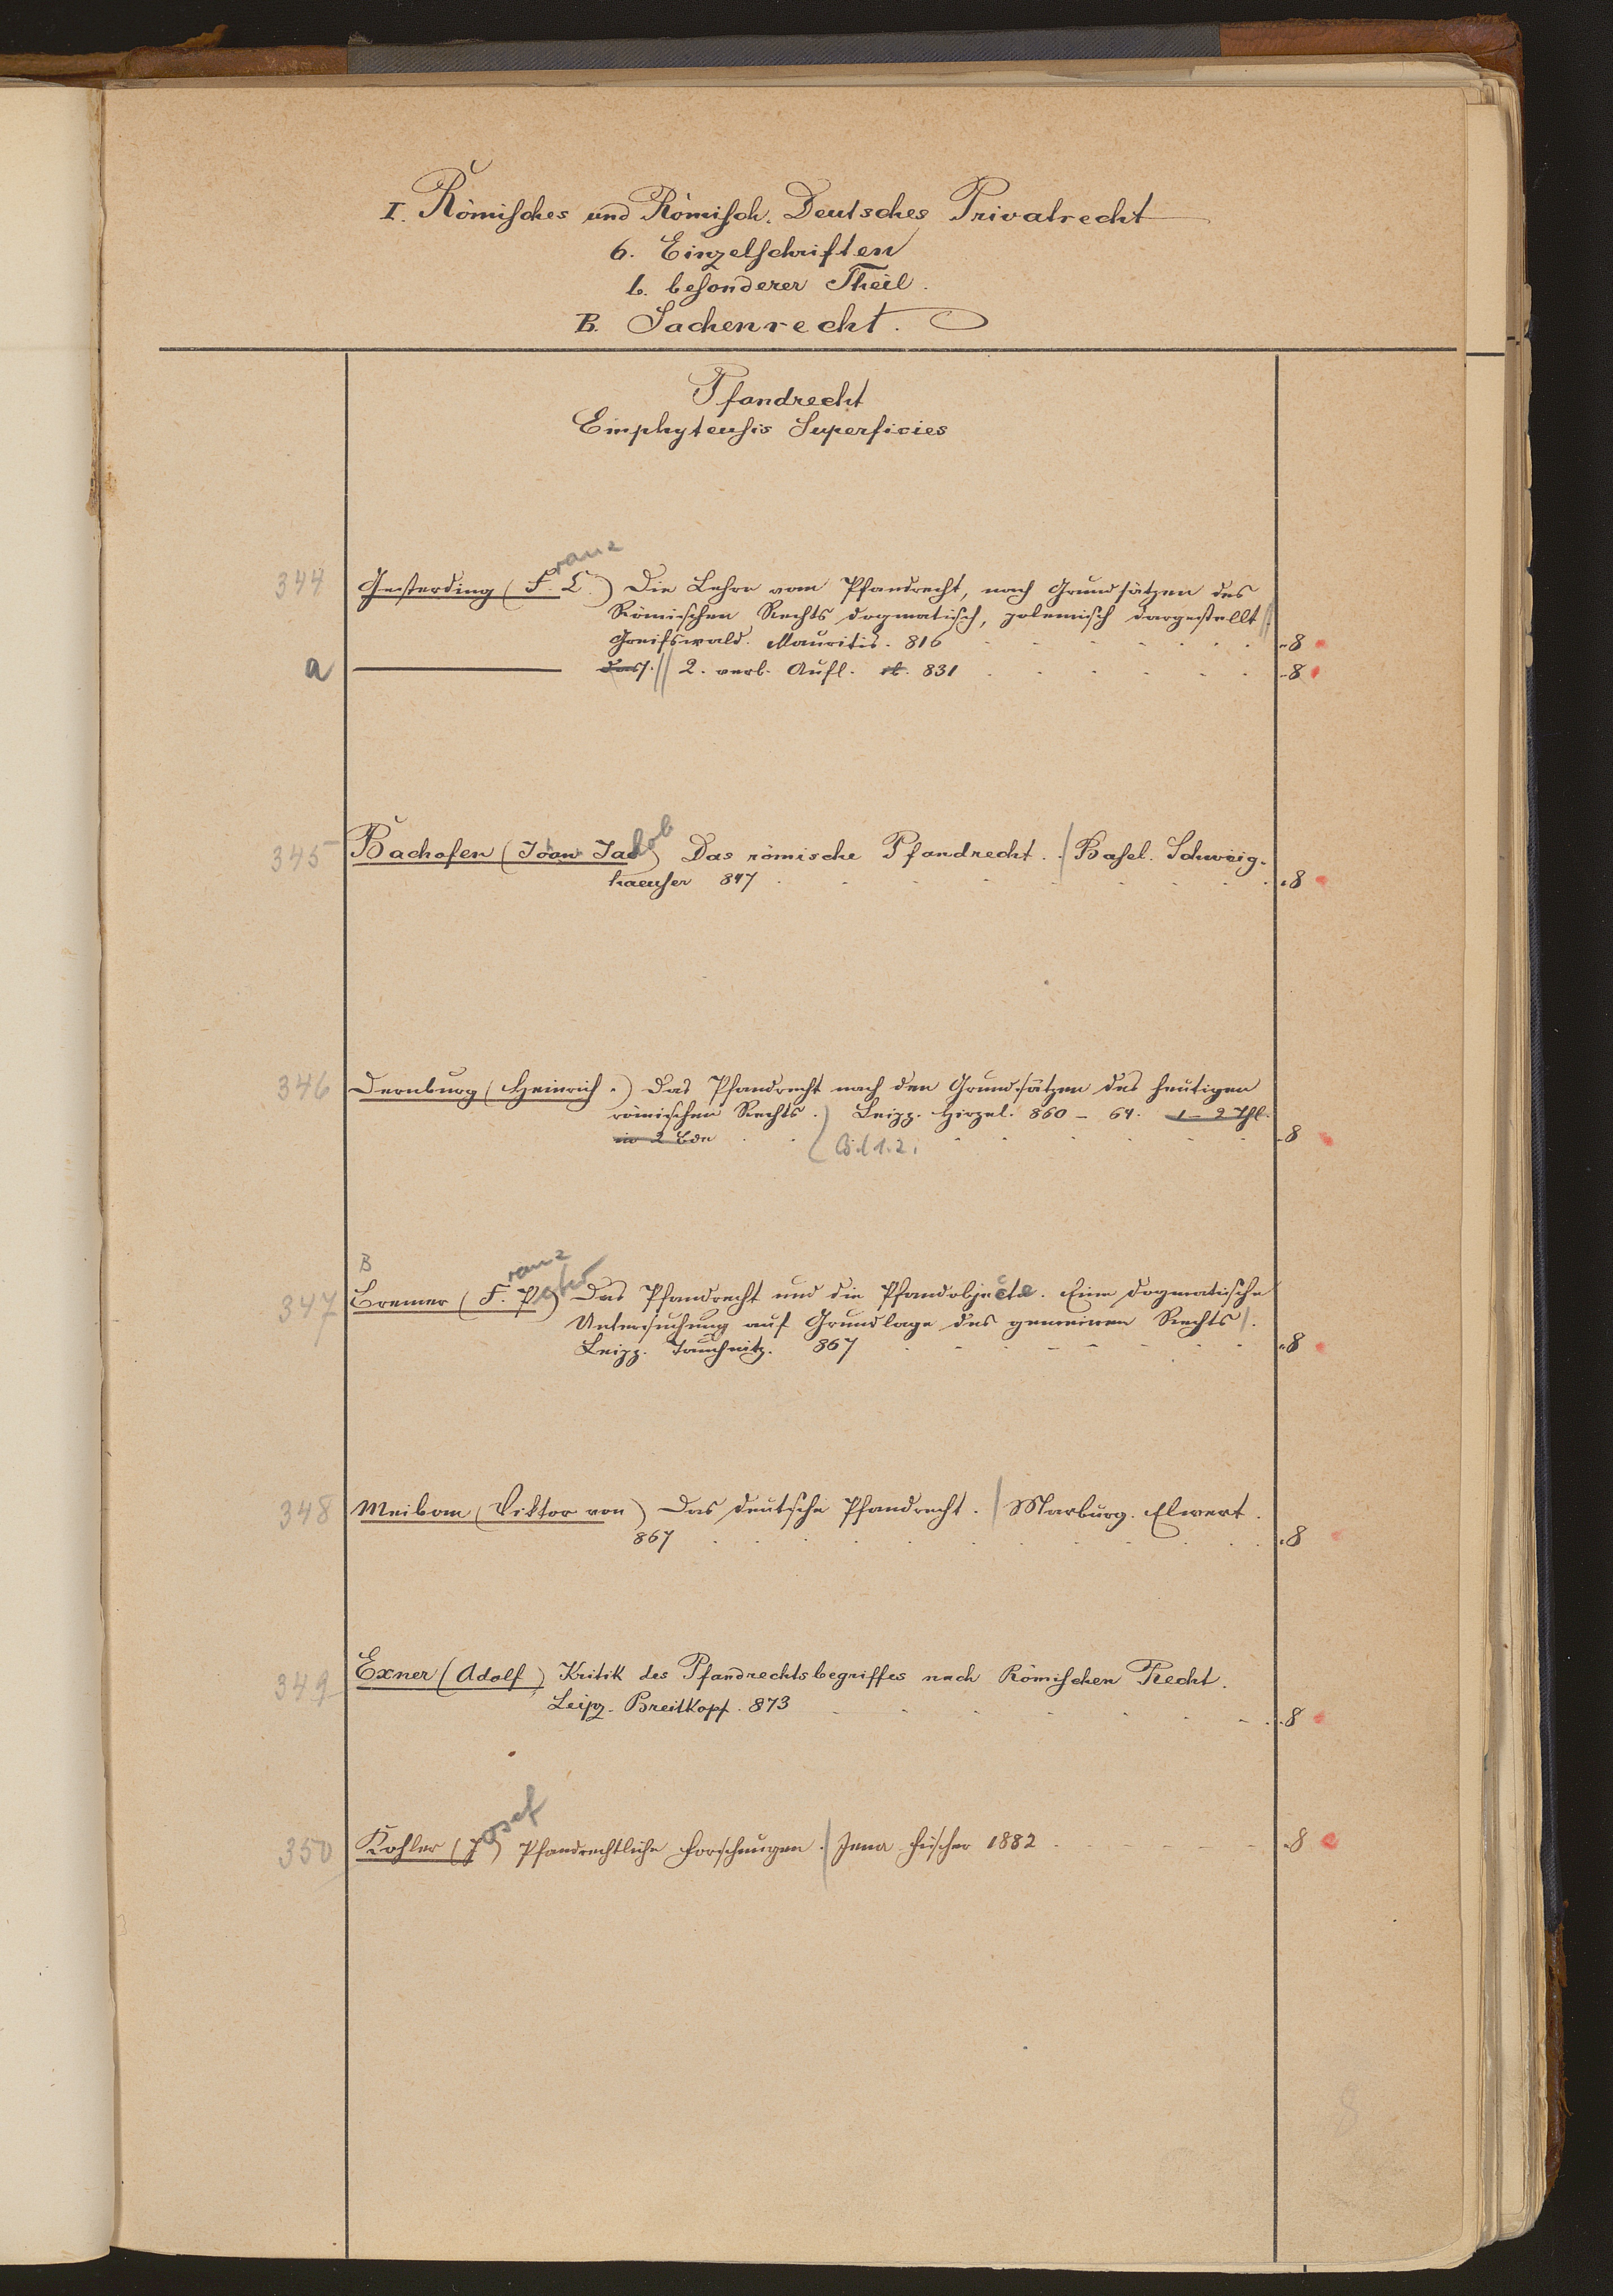 I. Römisches und Römisch. Deutsches Privatrecht
6. Einzelschriften
b. besonderer Theil.
B. Sachenrecht.
Pfandrecht
Emphyteusis Superficies
344 Gesterding (Franz C.) Die Lehre vom Pfandrecht, nach Grundsätzen des
Römischen Rechts dogmatisch, polemisch dargestellt //
Greifswald. Mauritis. 816 8
a dass. // 2. verb. Aufl. 831 8
345 Bachofen (Johan Jakob) Das römische Pfandrecht. / Basel. Schweig-
haeuser 847 8
346 Dernburg (Heinrich.) Das Pfandrecht nach den Grundsätzen des heutigen
römischen Rechts. ) Leipz. Hirzel. 860 - 64. 1 - 2 Thl.
in 2 Bdn ( Bd 1. 2. 8
B
347 Bremer (Franz Peter) Das Pfandrecht und die Pfandobjecte. Eine dogmatische
Untersuchung auf Grundlage des gemeinen Rechts /.
Leipz. Tauchnitz. 867 8
348 Meibom (Viktor von) Das deutsche Pfandrecht. / Marburg. Elwert.
867 8
349 Exner (Adolf) Kritik des Pfandrechtsbegriffes nach Römischen Recht.
Leipz. Breitkopf. 873 8
350 Kohler (Josef) Pfandrechtliche Forschungen. / Jena Fischer 1882 8